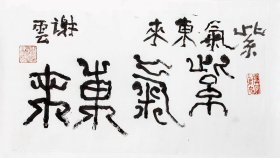 紫氣東來
紫氣東來
謝雲